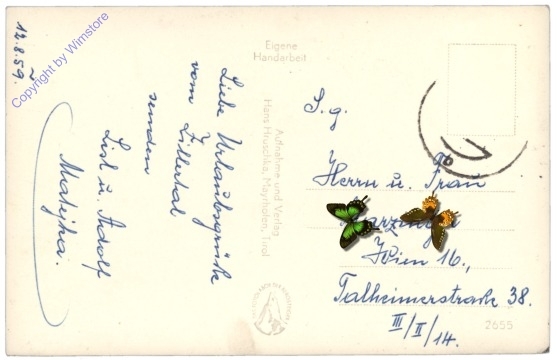 12.8.59.
Liebe Urlaubsgrüße
vom Zillertal
senden
Lisl u. Adolf
Matejka.
Eigene
Handarbeit
Aufnahme und Verlag
Hans Hruschka, Mayrhofen, Tirol
S. g.
Herrn u. Frau
Wien 16.,
Talheimerstraße 38.
III/II/14.
2655
Copyright by Wimstore